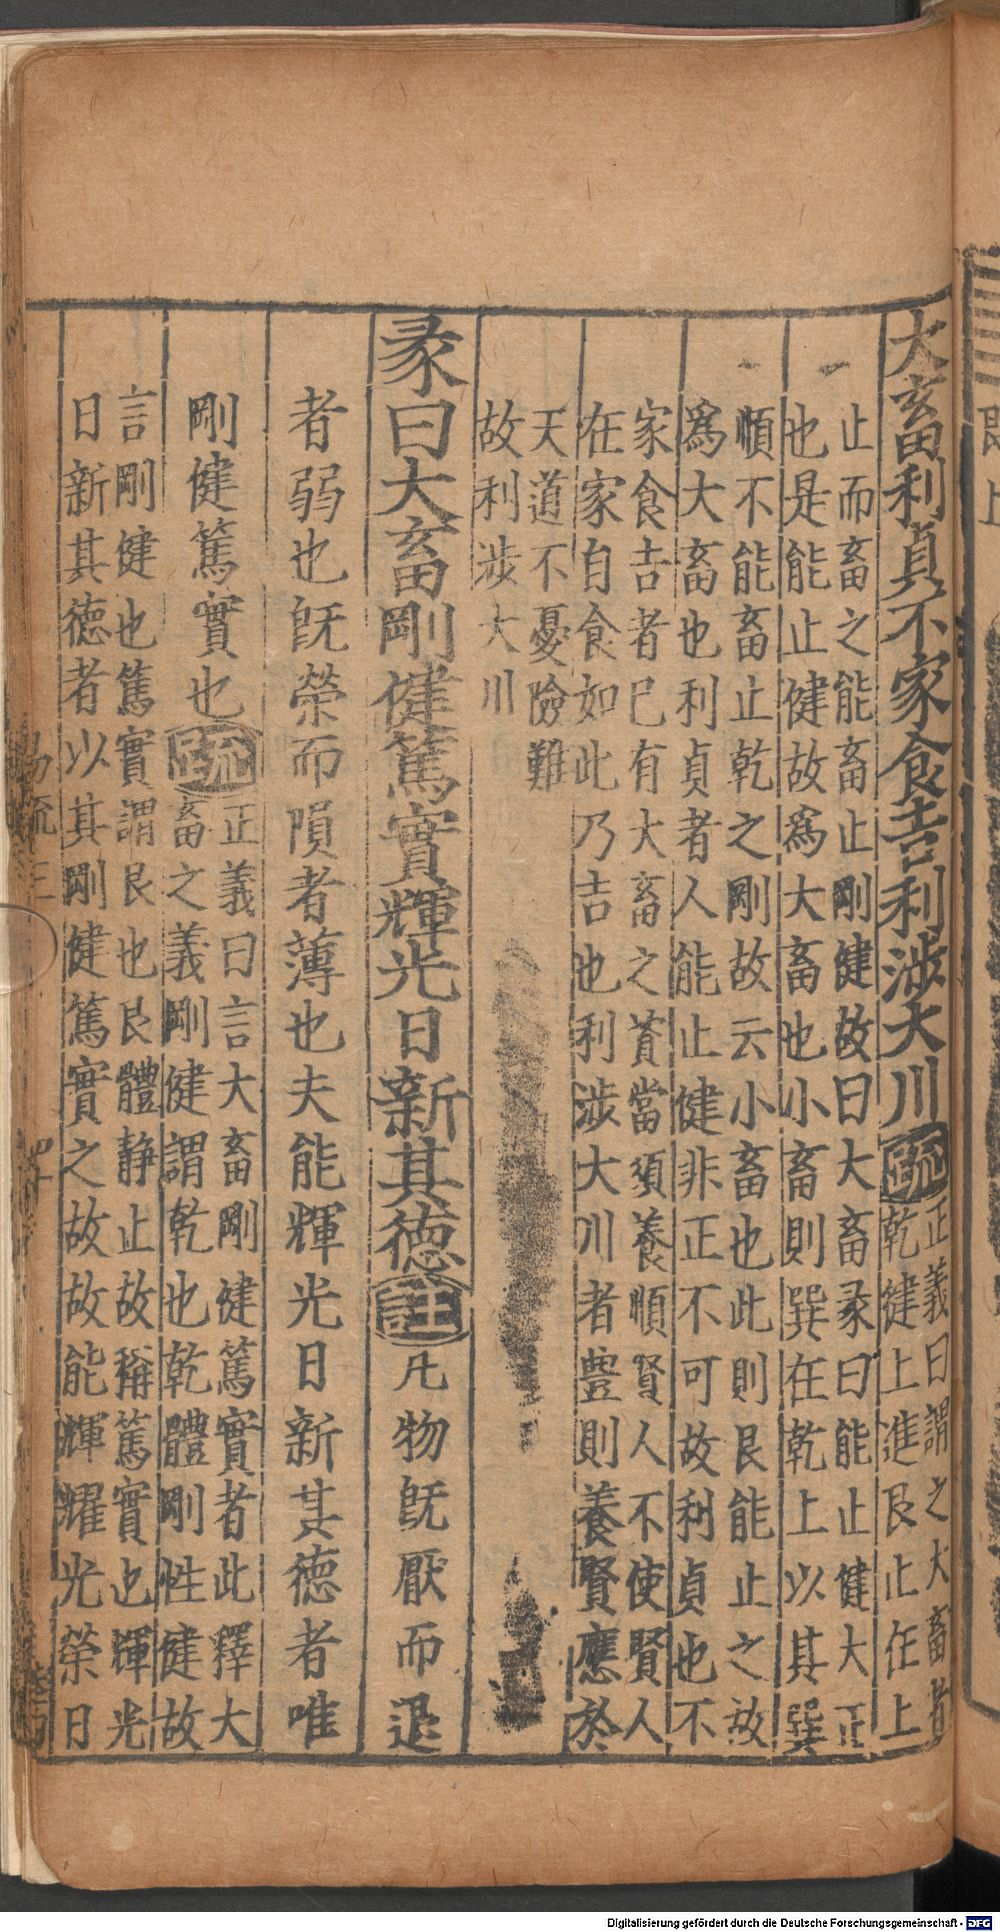 大畜利貞不家食吉利涉大川疏正義曰謂之大畜者
乾健上進艮止在上
止而畜之能畜止剛健故曰大畜彖曰能止健大正
也是能止健故爲大畜也小畜則巽在乾上以其巽
順不能畜止乾之剛故云小畜也此則艮能止之故
爲大畜也利貞者人能止健非正不可故利貞也不
家食吉者巳有大畜之資當須養順賢人不使賢人
在家自食如此乃吉也利涉大川者豊則養賢應於
天道不憂險難
故利涉大川
彖曰大畜剛健篤實輝光日新其德註凡物旣厭而退
者弱也旣榮而隕者薄也夫能輝光日新其德者唯
剛健篤實也疏正義曰言大畜剛健篤實者此釋大
畜之義剛健謂乾也乾體剛性健故
言剛健也篤實謂艮也艮體静止故稱篤實也輝光
日新其德者以其剛健篤實之故故能輝耀光榮日
易疏三
四十